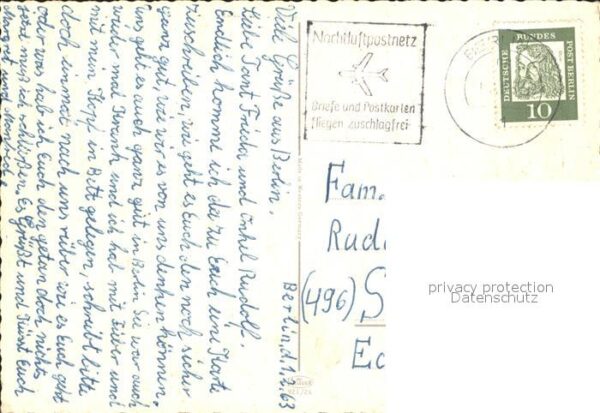 Viele Grüße aus Berlin.
Berlin d. 1.2.63
Liebe Tant Frieda und Onkel Rudolf.
Endlich komme ich da zu Euch eine Karte
zuschreiben, wie geht es Euch den noch, sicher
ganz gut, wie wir es von uns denken können.
Uns geht es auch ganz gut in Berlin. Sie war auch
wieder mal krank und ich hab mit Fieber und
mit mein Kopf in Bett gelegen, schreibt bitte
doch inmal nach uns rüber wie es Euch geht
oder was hab ich Euch den getan doch nichts
jetzt muß ich schließen. Es Grüßt und Küsst Euch
Margot und
Nachtluftpostnetz
Briefe und Postkarten
fliegen zuschlagfrei
DEUTSCHE BUNDESPOST BERLIN
10
Fam.
Rud
(496) S
Ec
privacy protection
Datenschutz